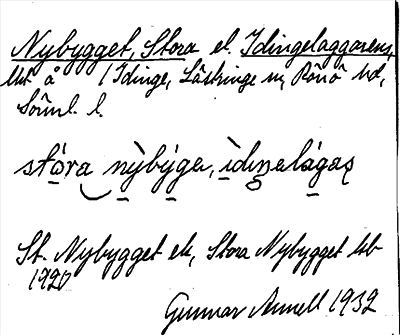 Nybygget, Stora el. Idingelaggaren,
litt å 1 Idinge, Lästringe sn, Rönö hd,
Sörml. l.
stóra nỳbýgeṭ, ìdiŋelágaṣ
St. Nybygget ek, Stora Nybygget Jdb
1920
Gunnar Annell 1932